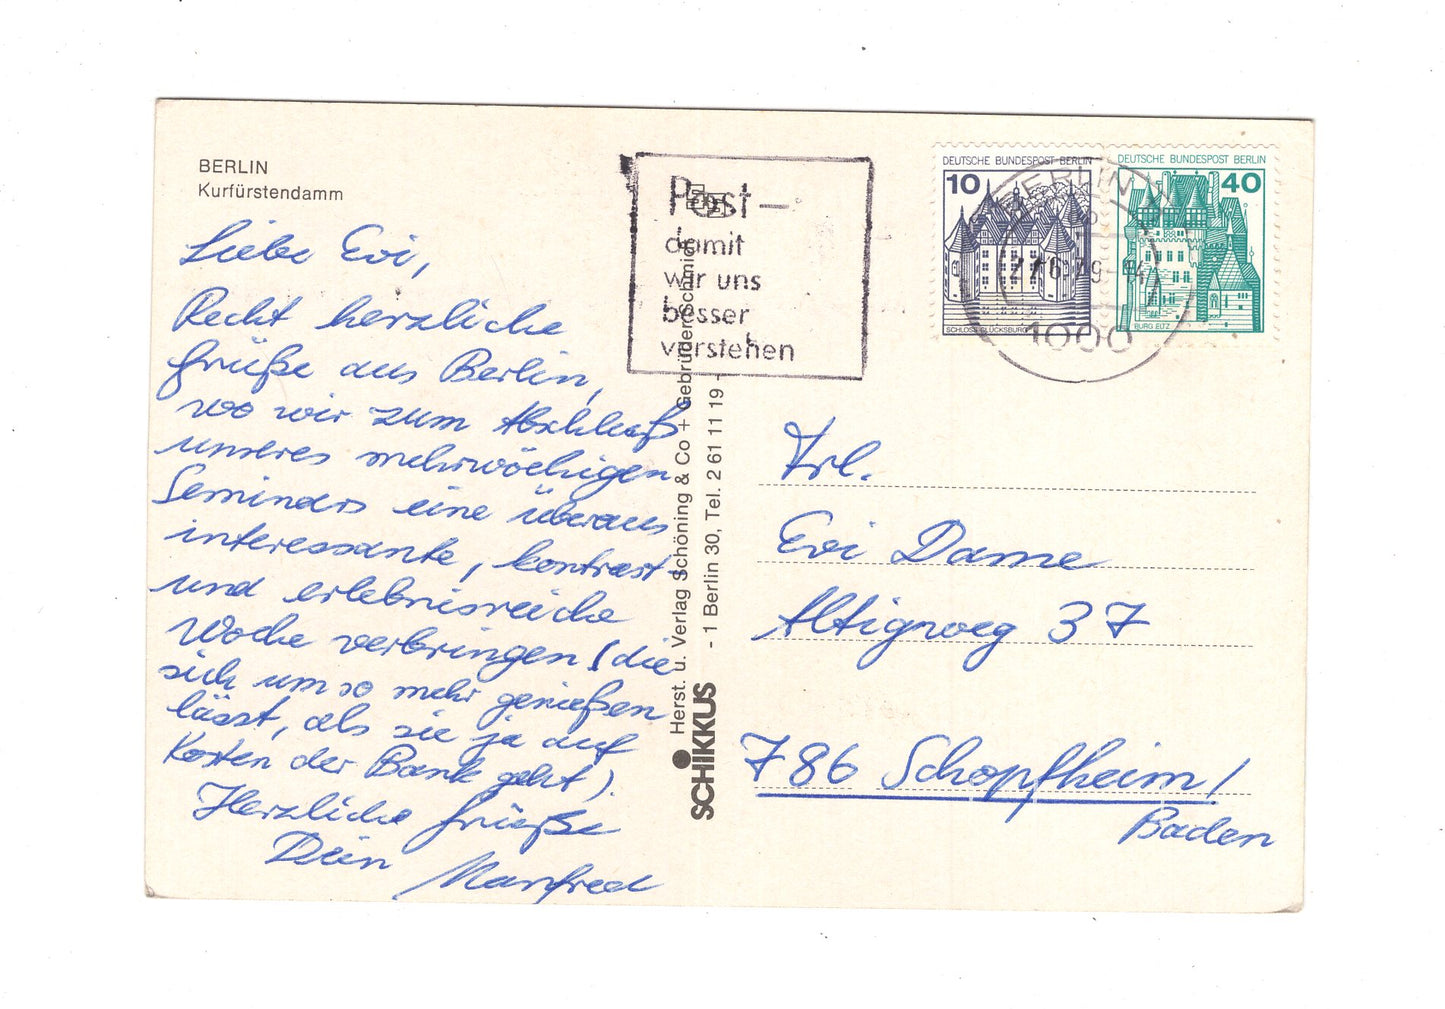 BERLIN
Kurfürstendamm
Liebe Evi,
Recht herzliche
Grüße aus Berlin,
wo wir zum Abschluß
unseres mehrwöchigen
Seminars eine überaus
interessante, kontrast-
und erlebnisreiche
Woche verbringen (die
sich um so mehr genießen
lässt, als sie ja auf
Kosten der Bank geht).
Herzliche Grüße
Dein Manfred
Post –
damit
wir uns
besser
verstehen
DEUTSCHE BUNDESPOST BERLIN
10
SCHLOSS GLÜCKSBURG
DEUTSCHE BUNDESPOST BERLIN
40
BURG ELTZ
BERLIN
1000
SCHIKKUS
Herst. u. Verlag Schöning & Co + Gebrüder Schmidt
- 1 Berlin 30, Tel. 2 61 11 19 -
Frl.
Evi Dame
Altigweg 37
786 Schopfheim /
Baden